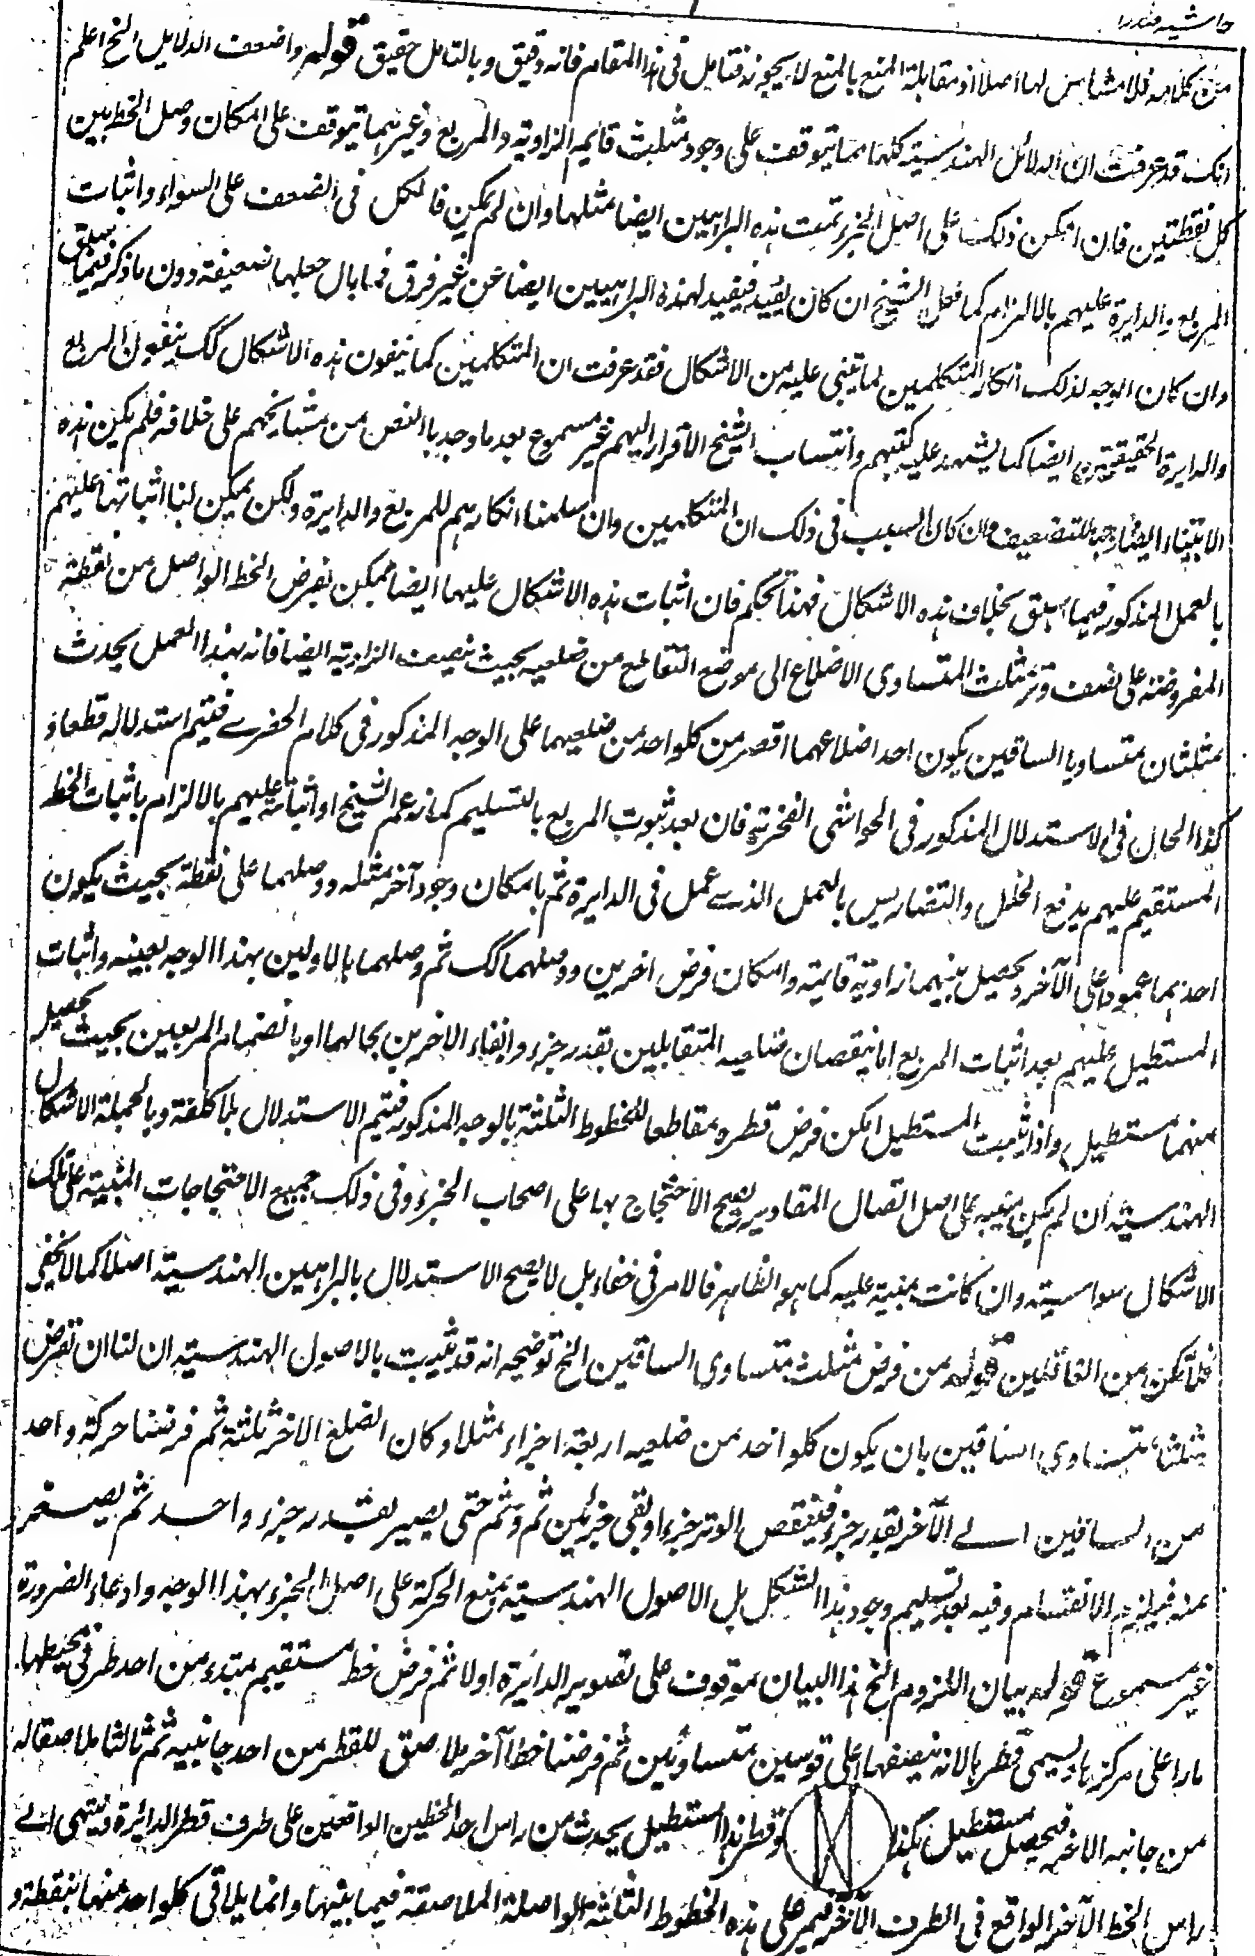 حاشیه صدرا
من کلامه فلا مساس لها اصلا اذ مقابلة المنع بالمنع لا یجوز فتامل فی هذا المقام فانه دقیق و بالتامل حقیق قوله واضعف الدلایل الخ اعلم
انک قد عرفت ان الدلائل الهندسیة کلها مما یتوقف علی وجود مثلث قایم الزاویة والمربع وغیرهما یتوقف علی امکان وصل الخط بین
کل نقطتین فان امکن ذلک علی اصل الجزء تمت هذه البراهین ایضا مثلها وان لم یکن فالکل فی الضعف علی السواء واثبات
المربع والدایرة علیهم بالالزام کما فعل الشیخ ان کان یفید فیفید لهذه البراهین ایضا من غیر فرق فما بال جعلها ضعیفة دون ما ذکر فیما سبق
وان کان الوجه لذلک انکار المتکلمین لما یبتنی علیه من الاشکال فقد عرفت ان المتکلمین کما ینفون هذه الاشکال کک ینفون المربع
والدایرة الحقیقیتین ایضا کما یشهد علیه کتبهم وانتساب الشیخ الاقرار الیهم غیر مسموع بعد ما وجد بالنص من مشایخهم علی خلافه فلم یکن هذه
الابتناء ایضا وجها للتضعیف وان کان السبب فی ذلک ان المتکلمین وان سلمنا انکارهم للمربع والدایرة ولکن یمکن لنا اثباتها علیهم
بالعمل المذکور فیما سبق بخلاف هذه الاشکال فهذا تحکم فان اثبات هذه الاشکال علیها ایضا ممکن بفرض الخط الواصل من نقطة
المفروضة علی نصف وتر مثلث المتساوی الاضلاع الی موضع التقاطع من ضلعیه بحیث نصف الزاویة ایضا فانه بهذا العمل یحدث
مثلثان متساویا الساقین یکون احد اضلاعهما اقصر من کلواحد من ضلعیهما علی الوجه المذکور فی کلام الحضری فیتم استدلاله قطعا و
کذا الحال فی الاستدلال المذکور فی الحواشی الفخریة فان بعد ثبوت المربع بالتسلیم کما زعم الشیخ او اثباته علیهم بالالزام باثبات الخط
المستقیم علیهم یدفع الخلل والتضاریس بالعمل الذی عمل فی الدایرة ثم بامکان وجود آخر مثله ووصلهما علی نقطة بحیث یکون
احدهما عمودا علی الآخر وتحصیل بینهما زاویة قایمة وامکان فرض اخرین ووصلهما کک ثم وصلهما بالاولین بهذا الوجه بعینه واثبات
المستطیل علیهم بعد اثبات المربع اما بنقصان ضلعیه المتقابلین بقدر جزء وابقاء الاخرین بحالهما او بانضمام المربعین بحیث یحصل
منهما مستطیل واذا ثبت المستطیل امکن فرض قطره مقاطعا للخطوط الثلثة بالوجه المذکور فیتم الاستدلال بلا کلفة وبالجملة الاشکال
الهندسیة ان لم یکن مبنیه علی اصل اتصال المقادیر یصح الاحتجاج بها علی اصحاب الجزء وفی ذلک جمیع الاحتجاجات المبنیة علی تلک
الاشکال سواسیة وان کانت مبنیة علیه کما هو الظاهر فالامر فی خفاء بل لا یصح الاستدلال بالبراهین الهندسیة اصلا کما لا یخفی
فلا تکن من الغافلین قوله من فرض مثلث متساوی الساقین الخ توضیحه انه قد ثبت بالاصول الهندسیة ان لنا ان نفرض
مثلثا متساوی الساقین بان یکون کلواحد من ضلعیه اربعة اجزاء مثلا وکان الضلع الآخر ثلثة ثم فرضنا حرکة واحد
من الساقین الی الآخر بقدر جزء فینقص الوتر جزءا وبقی جزئین ثم وثم حتی یصیر بقدر جزء واحد ثم یصیر اصغر
منه فیلزم الانقسام وفیه بعد تسلیم وجود هذا الشکل بل الاصول الهندسیة یمنع الحرکة علی اصل الجزء بهذا الوجه وادعاء الضرورة
غیر مسموع قوله بیان اللزوم الخ هذا البیان موقوف علی تصویر الدائرة اولا ثم فرض خط مستقیم مبتدء من احد طرفی محیطها
مارا علی مرکزها یسمی قطرا لانه ینصفها علی قوسین متساویین ثم فرضنا خطا آخر ملاصق للقطر من احد جانبیه ثم ثالثا ملاصقا له
من جانبه الآخر فیحصل مستطیل هکذا وقطر هذا المستطیل یحدث من راس احد الخطین الواقعین علی طرف قطر الدائرة وینتهی الی
راس الخط الآخر الواقع فی الطرف الآخر فیمر علی هذه الخطوط الثلثة الواصلة الملاصقة فیما بینها وانما یلاقی کلواحد منها بنقطة و